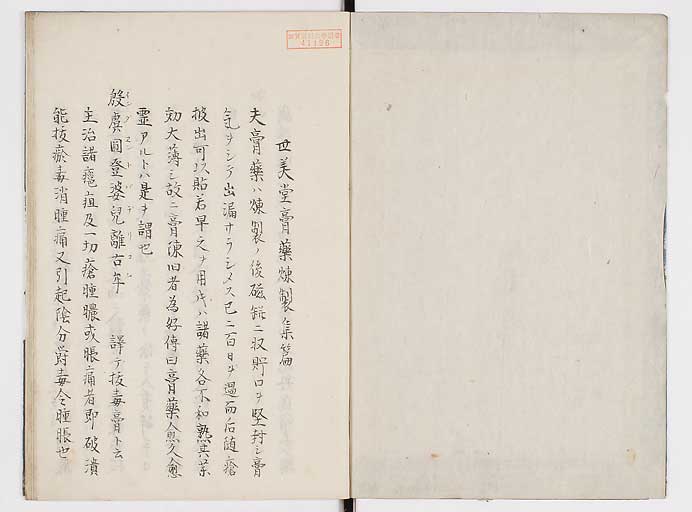 世美堂膏藥煉製集篇
夫膏藥ハ煉製ノ後磁缾ニ収貯口ヲ堅封シ膏
氣ヲシテ出漏サラシメス已ニ百日ヲ過而后随瘡
披出可以貼若早之ヲ用片ハ諸藥各不和熟其菓
効大薄シ故ニ膏陳旧者為好傳曰膏藥愈久愈
霊アルトハ是ヲ謂也
殷虞圓登婆兒離古年 譯テ抜毒膏ト云
主治諸瘡疽及一切瘡腫膿或脹痛者即破潰
能抜瘀毒消腫痛又引起陰分欝毒令腫脹也
41196